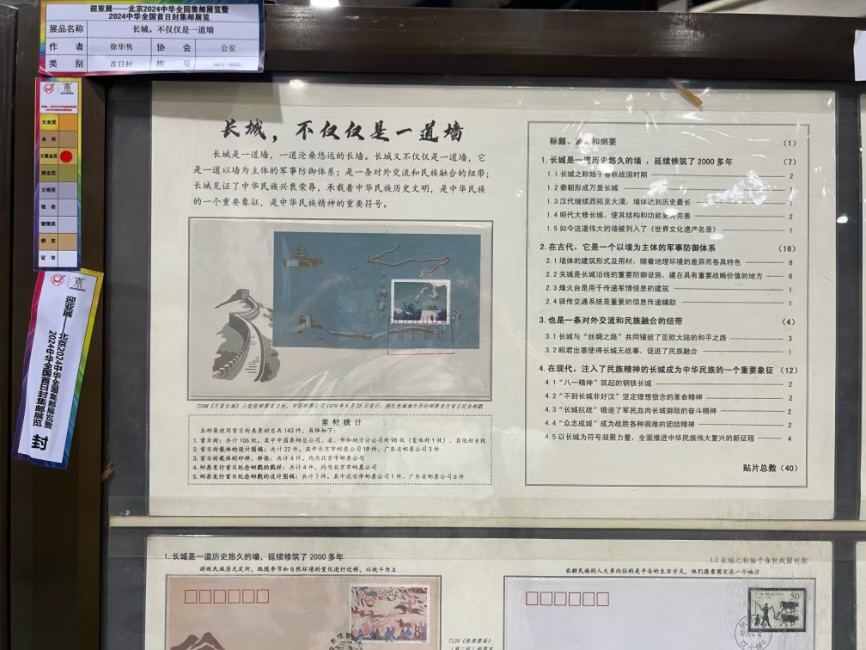 迎亚展——北京2024中华全国集邮展览暨
2024中华全国首日封集邮展览
展品名称 长城，不仅仅是一道墙
作 者 徐华男 协 会 公安
类 别 首日封 框 号
大金奖
金 奖
大镀金奖
镀金奖
大银奖
银 奖
镀银奖
铜 奖
证 书
迎亚展——北京2024中华全国集邮展览暨
2024中华全国首日封集邮展览
封
长城，不仅仅是一道墙
长城是一道墙，一道沧桑悠远的长墙。长城又不仅仅是一道墙，它
是一道以墙为主体的军事防御体系；是一条对外交流和民族融合的纽带；
长城见证了中华民族兴衰荣辱，承载着中华民族历史文明，是中华民族
的一个重要象征，是中华民族精神的重要符号。
素材统计
本邮集使用首日封类素材总共143件，具体如下：
标题、 和纲要 (1)
1.长城是一道历史悠久的墙，延续修筑了2000多年 (7)
1.1长城之称始于春秋战国时期 2
1.2秦朝形成万里长城
1.3汉代继续西拓至大漠，墙体达到历史最长
1.4明代大修长城，使其结构和功能更为完善 2
1.5如今这道伟大的墙被列入了《世界文化遗产名录》 1
2.在古代，它是一个以墙为主体的军事防御体系 (16)
2.1墙体的建筑形式及用材，随着地理环境的差异而各具特色 8
2.2关城是长城沿线的重要防御设施，建在具有重要战略价值的地方 6
2.3烽火台是用于传递军情信息的建筑 1
2.4驿传交通系统是重要的信息传递辅助 1
3.也是一条对外交流和民族融合的纽带 (4)
3.1长城与“丝绸之路”共同铺就了亚欧大陆的和平之路 3
3.2昭君出塞使得长城无战事，促进了民族融合 1
4.在现代，注入了民族精神的长城成为中华民族的一个重要象征 (12)
4.1“八一精神”筑起的钢铁长城 2
4.2“不到长城非好汉”坚定理想信念的革命精神 2
4.3“长城抗战”锻造了军民血肉长城御敌的奋斗精神 2
4.4“众志成城”成为战胜各种困难的团结精神 2
4.5以长城为符号凝聚力量，全面推进中华民族伟大复兴的新征程 4
贴片总数（40）
1.长城是一道历史悠久的墙，延续修筑了2000多年
1.1长城之称始于春秋战国时期
游牧民族居无定所，跟随季节和自然环境的变化进行迁移，以战斗为主
50
8